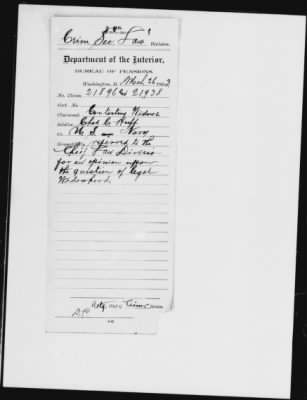 Crim Sec. Law
Division.
Department of the Interior,
BUREAU OF PENSIONS,
Washington, D.C., 26, 190
No. Claim, 21896 21938
Cert. No.
Claimant, Contesting Widows
Soldier, Chas C. Huff
Co. U S Navy
Respectfully to the
Chief Law Division
for an opinion upon
the question of legal
Widowhood